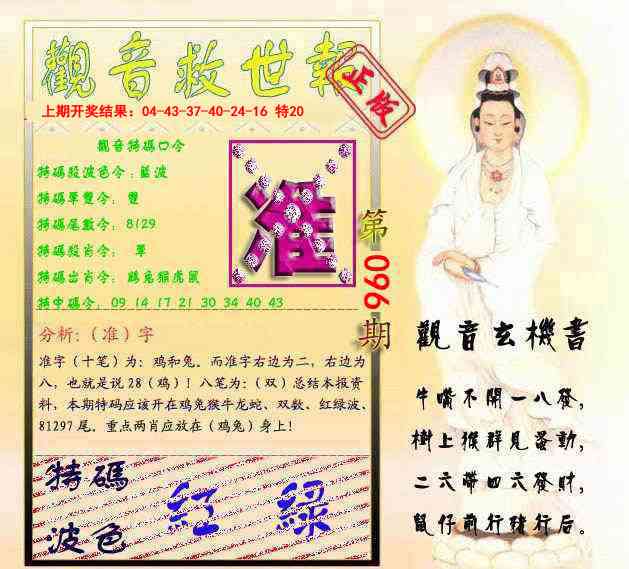 觀音救世報
正版
上期开奖结果：04-43-37-40-24-16 特20
觀音特碼口令
特碼殺波色令：藍波
特碼單雙令： 雙
特碼尾數令： 8129
特碼殺肖令： 單
特碼出肖令： 鷄兔猴虎鼠
特中碼令： 09 14 17 21 30 34 40 43
准
第096期
分析：（准）字
准字（十笔）为：鸡和兔。而准字右边为二，右边为
八，也就是说28（鸡）！八笔为：（双）总结本报资
料，本期特码应该开在鸡兔猴牛龙蛇、双数、红绿波、
81297尾。重点两肖应放在（鸡兔）身上！
特碼
波色
紅 綠
觀音玄機書
牛嘴不開一八發，
樹上猴群見
動，
二六帶四六發財，
鼠仔前行豬行后。